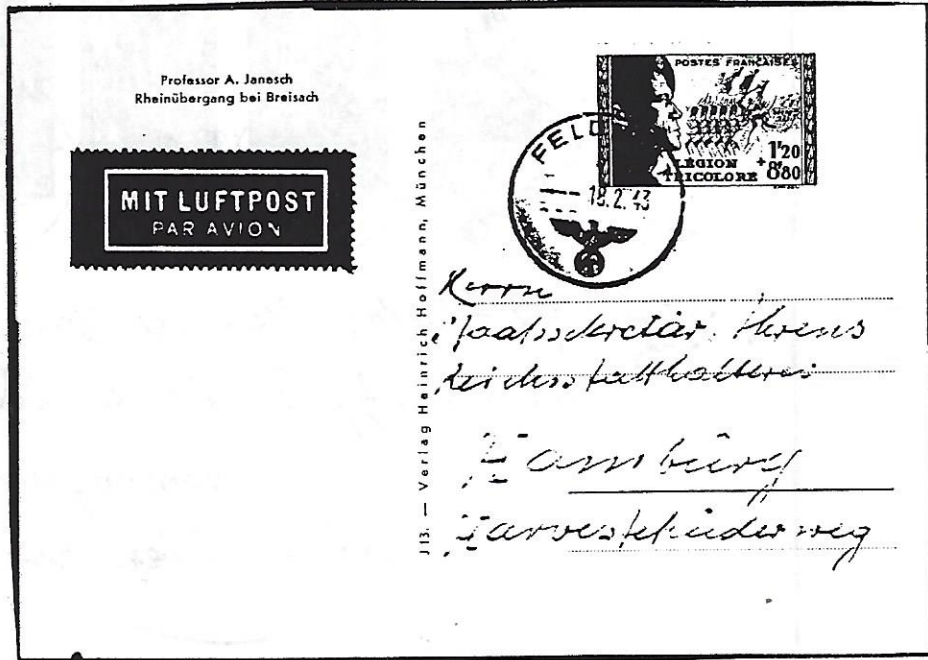 Professor A. Janesch
Rheinübergang bei Breisach
MIT LUFTPOST
PAR AVION
J 13. — Verlag Heinrich Hoffmann, München
POSTES FRANÇAISES
LÉGION
TRICOLORE
1F20
+ 0F80
FELD
18.2.43
Herrn
Staatssekretär Ahrens
Reichsstatthalterei
Hamburg
Harvestehuderweg